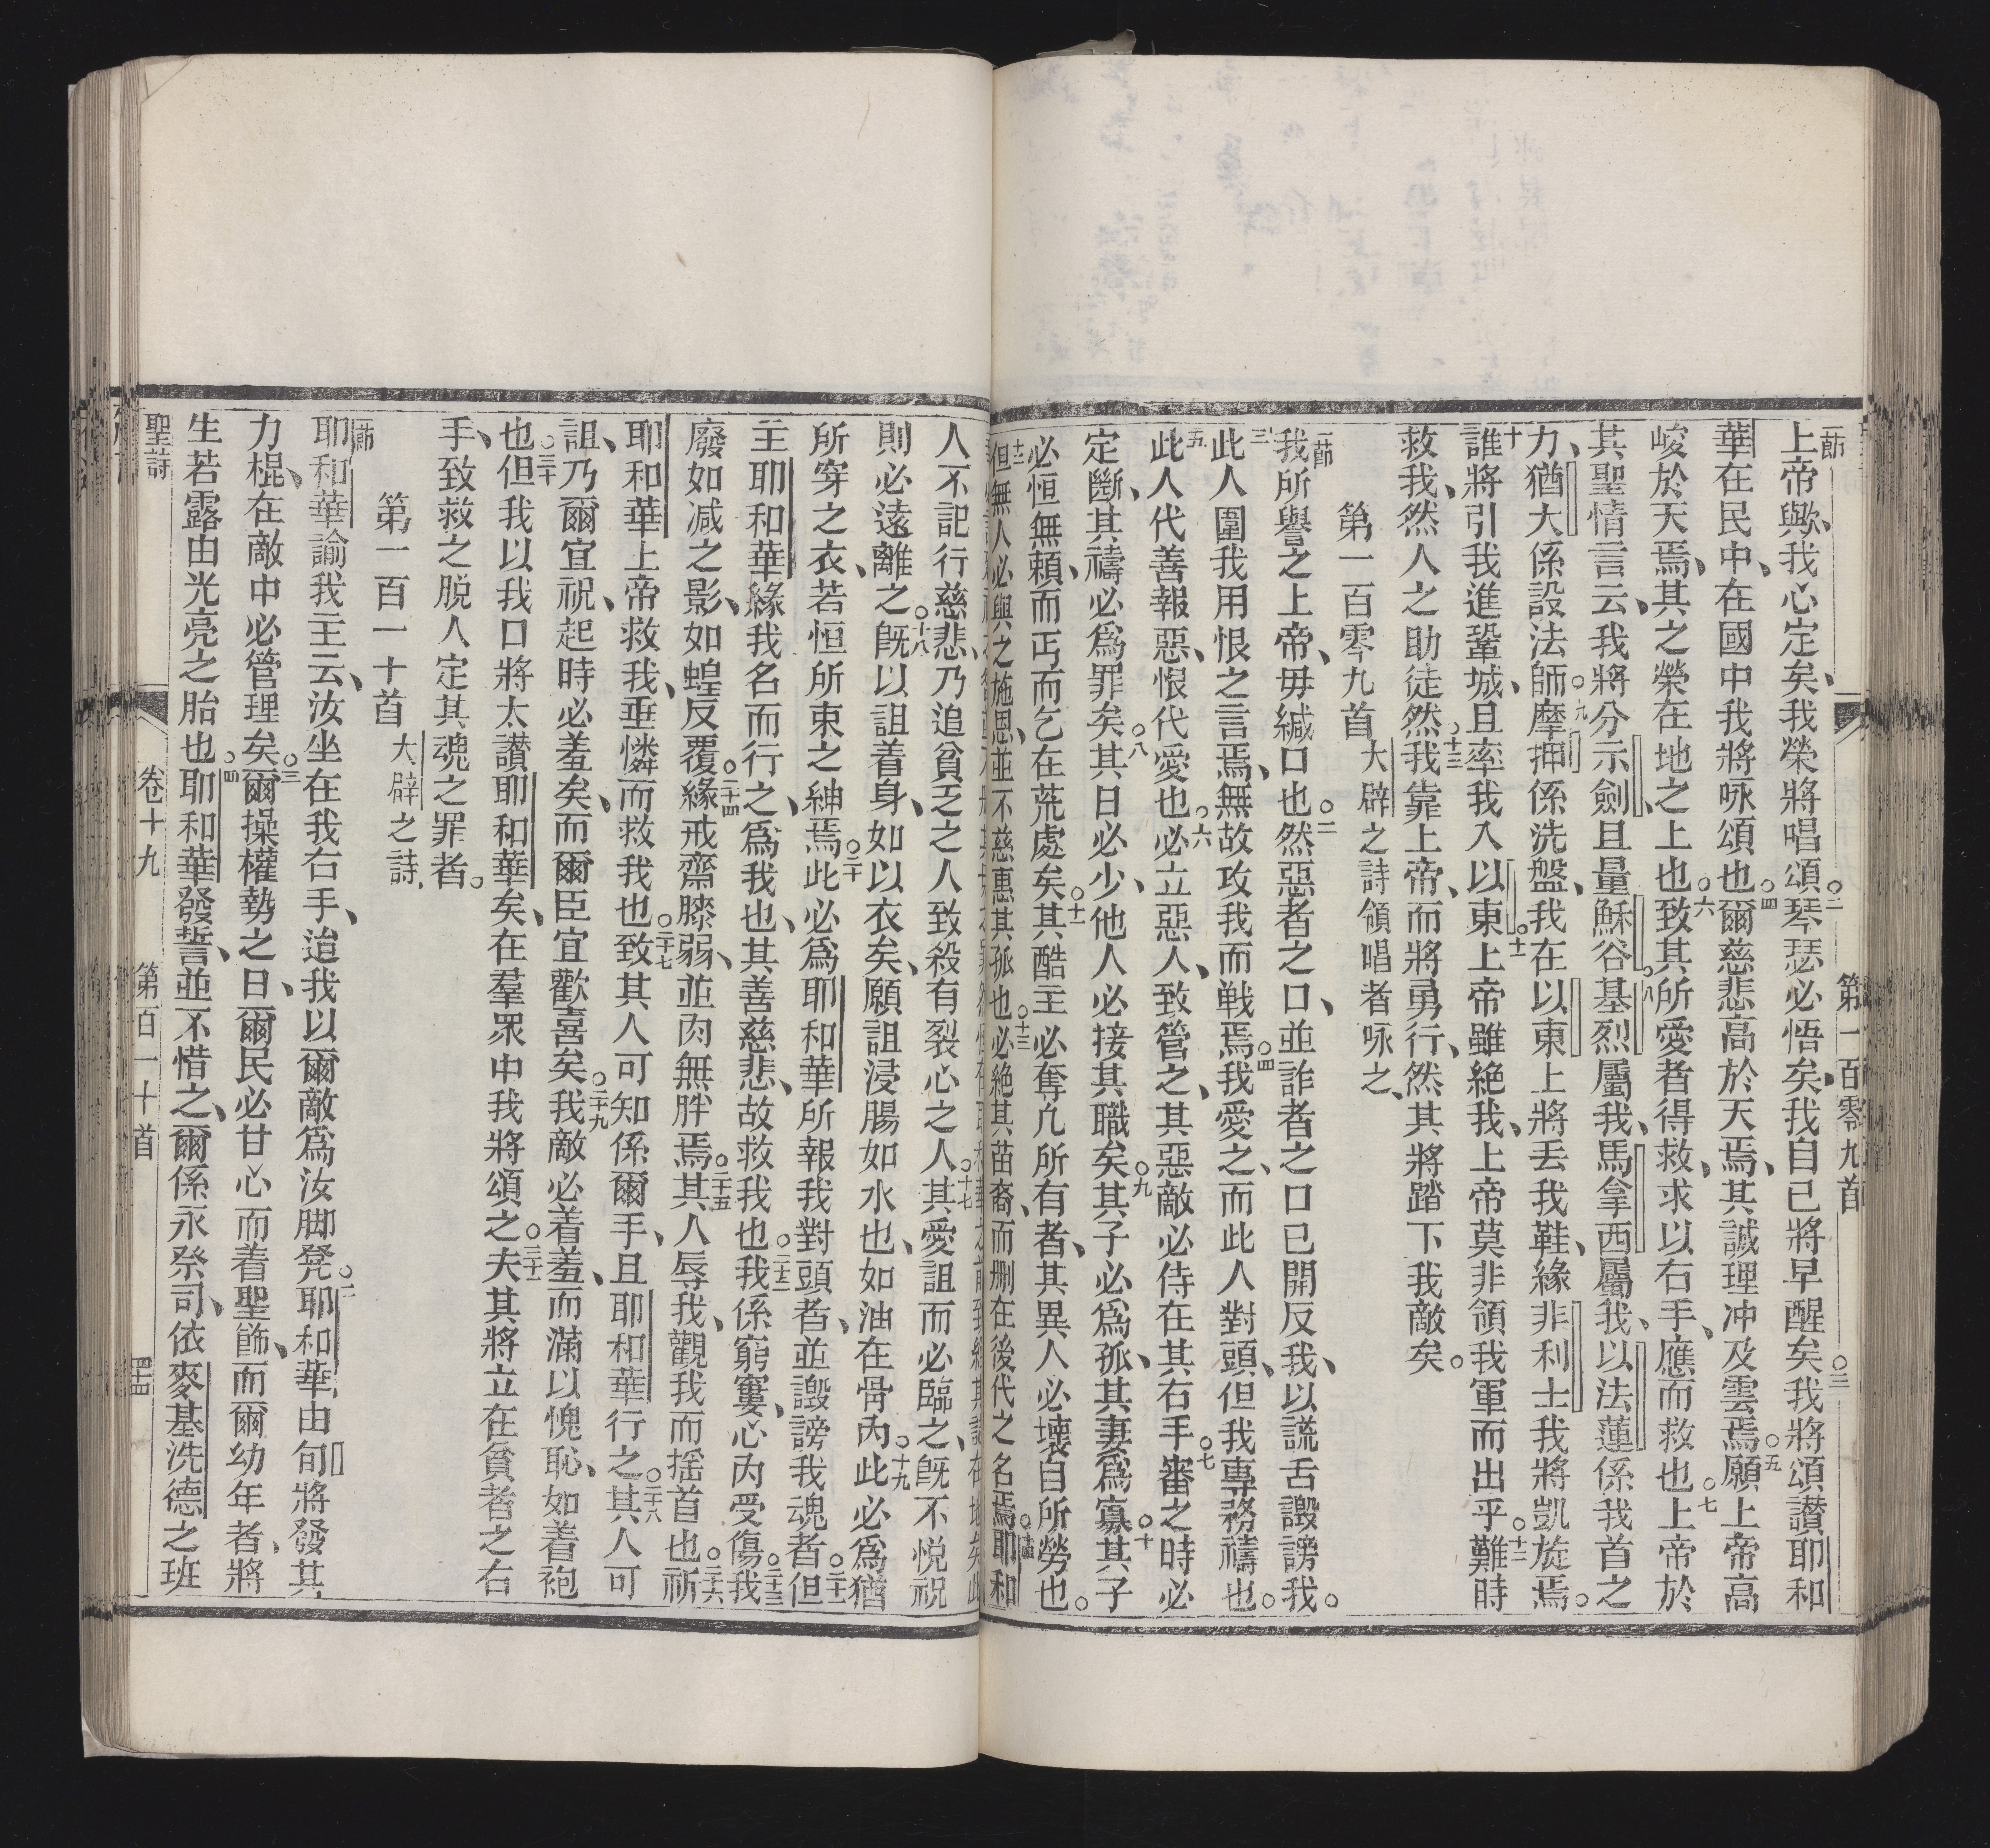 第一百零九首
一節
上帝歟、我心定矣、我榮將唱頌。二琴瑟必悟矣、我自己將早醒矣。三我將頌讃耶和
華在民中、在國中我將咏頌也。四爾慈悲高於天焉、其誠理冲及雲焉。五願上帝高
峻於天焉、其之榮在地之上也。六致其所愛者得救、求以右手、應而救也。七上帝於
其聖情言云、我將分示劍、且量穌谷。八基烈屬我、馬拿西屬我、以法蓮係我首之
力、猶大係設法師。九摩押係洗盤、我在以東上將丟我鞋、緣非利士我將凱旋焉。
十誰將引我進鞏城、且率我入以東。十一上帝雖絕我、上帝莫非領我軍而出乎。十二難時
救我、然人之助徒然。十三我靠上帝、而將勇行、然其將踏下我敵矣。
第一百零九首 大辟之詩領唱者咏之、
一節
我所譽之上帝、毋緘口也。二然惡者之口、並詐者之口已開反我、以謊舌譭謗我。
三此人圍我用恨之言焉、無故攻我而戦焉。四我愛之、而此人對頭、但我專務禱也。
五此人代善報惡、恨代愛也。六必立惡人、致管之、其惡敵必侍在其右手。七審之時必
定斷、其禱必爲罪矣。八其日必少、他人必接其職矣。九其子必爲孤、其妻爲寡。十其子
必恒無頼、而丐而乞在荒處矣。十一其酷主必奪凢所有者、其異人必壞自所勞也。
十二但無人必與之施恩、並不慈惠其孤也。十三必絕其苗裔、而刪在後代之名焉。十四耶和
人不記行慈悲、乃追貧乏之人致殺有裂心之人。十七其愛詛而必臨之、旣不悅祝
則必遠離之。十八旣以詛着身、如以衣矣、願詛浸腸如水也、如油在骨內。十九此必爲猶
所穿之衣、若恒所束之紳焉。二十此必爲耶和華所報我對頭者、並譭謗我魂者。二十一但
主耶和華緣我名而行之、爲我也、其善慈悲、故救我也。二十二我係窮窶、心內受傷。二十三我
廢如減之影、如蝗反覆。二十四緣戒齋膝弱、並肉無胖焉。二十五其人辱我、觀我而摇首也。二十六祈
耶和華上帝救我、垂憐而救我也。二十七致其人可知係爾手、且耶和華行之。二十八其人可
詛、乃爾宜祝、起時必羞矣、而爾臣宜歡喜矣。二十九我敵必着羞、而滿以愧恥、如着袍
也。三十但我以我口將太讃耶和華矣、在羣眾中我將頌之。三十一夫其將立在貧者之右
手、致救之脫人定其魂之罪者。
第一百一十首 大辟之詩
一節
耶和華諭我主云、汝坐在我右手、迨我以爾敵爲汝脚凳。二耶和華由旬將發其
力棍、在敵中必管理矣。三爾操權勢之日、爾民必甘心而着聖飾、而爾幼年者、將
生若露由光亮之胎也。四耶和華發誓、並不惜之、爾係永祭司、依麥基洗德之班
聖詩 卷十九 第一百一十首 四十四